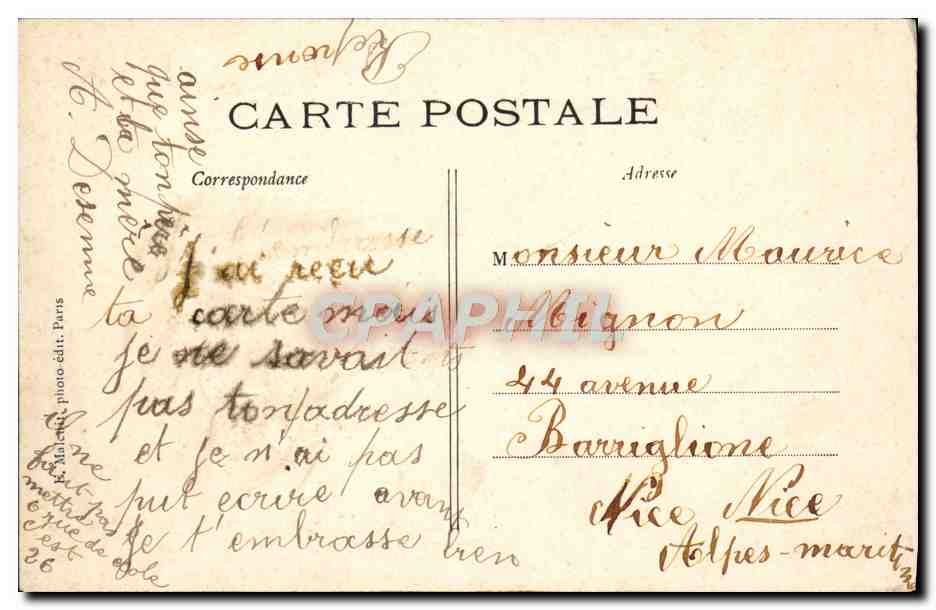 Réponse
CARTE POSTALE
Correspondance
J'ai reçu
ta carte mais
je ne savait
pas ton adresse
et je n'ai pas
put ecrire avant
je t'embrasse bien
ainse
que ton père
et ta mère
A. Desenne
Il ne
faut pas
mettre
rue de
c'est
26
photo-édit. Paris
Adresse
Monsieur Maurice
Mignon
44 avenue
Barriglione
Nice Nice
Alpes-maritime
CPAPHIL